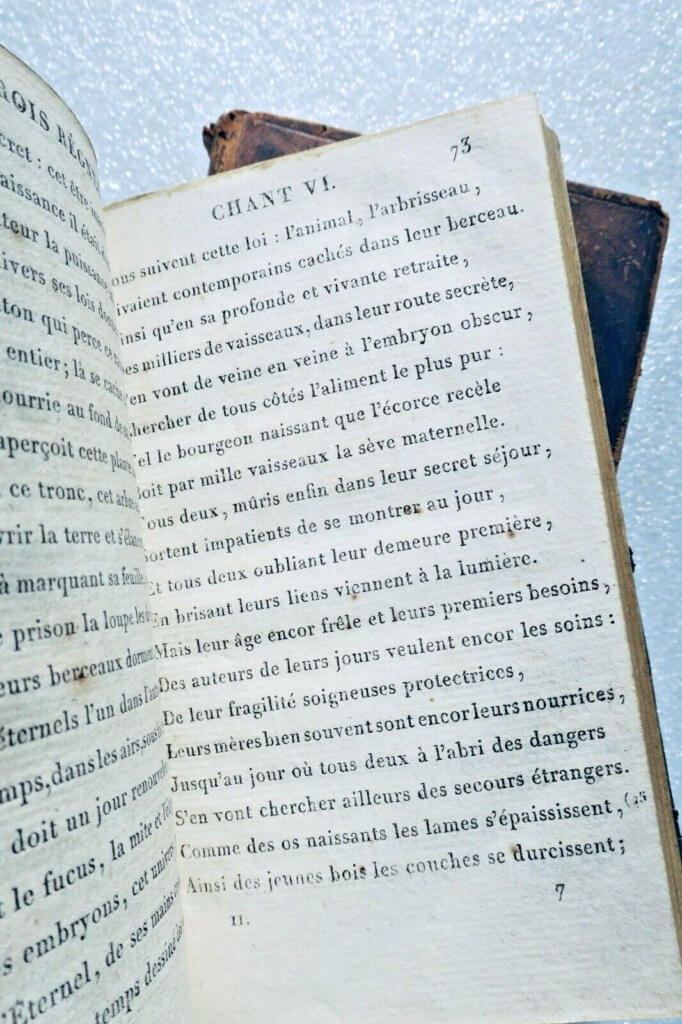 ROIS RÈGN
cret : cet être
aissance il était
ateur la puissance
nivers ses lois
ton qui perce ce
entier ; là se cache
ourrie au fond de
aperçoit cette plante
ce tronc, cet arbre
vrir la terre et s'élan
à marquant sa feuille
e prison la loupe les
eurs berceaux dorment
éternels l'un dans l'autre
mps, dans les airs, sous
doit un jour renouveler
t le fucus, la mite et l'élé
s embryons, cet univers
l'Éternel, de ses mains
temps dessiné
CHANT VI. 73
ous suivent cette loi : l'animal, l'arbrisseau,
ivaient contemporains cachés dans leur berceau.
insi qu'en sa profonde et vivante retraite,
es milliers de vaisseaux, dans leur route secrète,
'en vont de veine en veine à l'embryon obscur,
hercher de tous côtés l'aliment le plus pur :
el le bourgeon naissant que l'écorce recèle
oit par mille vaisseaux la sève maternelle.
ous deux, mûris enfin dans leur secret séjour,
ortent impatients de se montrer au jour,
Et tous deux oubliant leur demeure première,
En brisant leurs liens viennent à la lumière.
Mais leur âge encor frêle et leurs premiers besoins,
Des auteurs de leurs jours veulent encor les soins :
De leur fragilité soigneuses protectrices,
Leurs mères bien souvent sont encor leurs nourrices,
Jusqu'au jour où tous deux à l'abri des dangers
S'en vont chercher ailleurs des secours étrangers.
Comme des os naissants les lames s'épaississent, (25
Ainsi des jeunes bois les couches se durcissent ;
II. 7